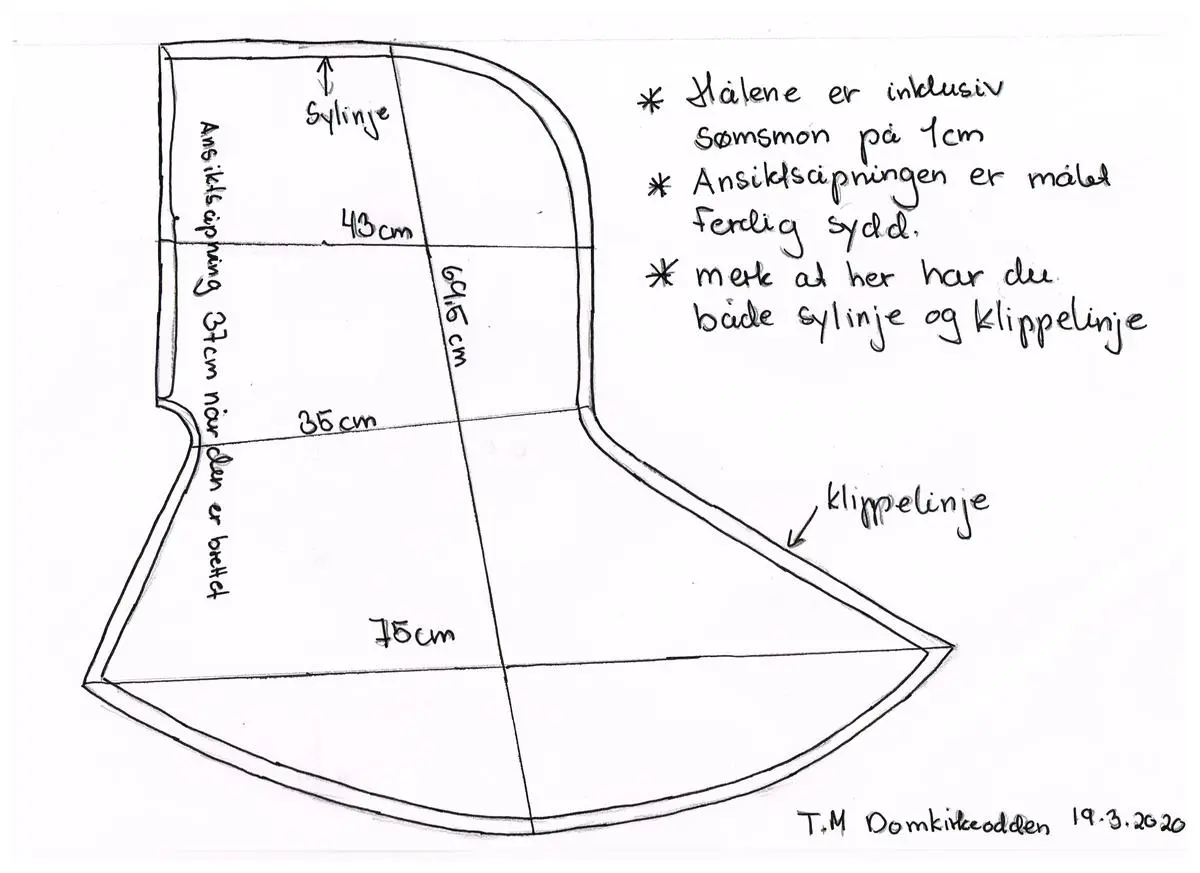 Sylinje
Ansiktsåpning 37cm når den er brettet
43cm
64,5 cm
35cm
75cm
* Målene er inklusiv
sømsmon på 1cm
* Ansiktsåpningen er målet
ferdig sydd.
* merk at her har du
både sylinje og klippelinje
klippelinje
T.M Domkirkeodden 19.3.2020